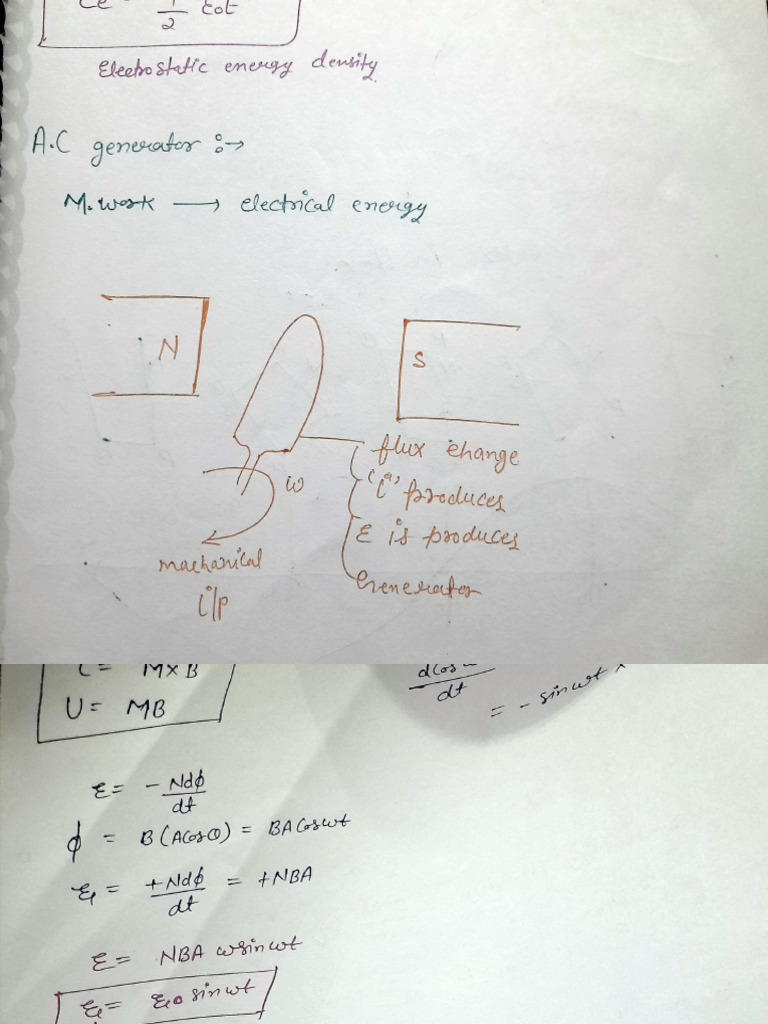 1/2 ε0t
Electrostatic energy density
A.C generator :→
M.work → electrical energy
N
S
flux change
"i" produces
ω
ε is produces
mechanical
Generator
i/p
= M×B
U = MB
dt
= - sinωt ×
ε = - Ndϕ/dt
ϕ = B(Acosθ) = BAcosωt
ε = +Ndϕ/dt = +NBA
ε = NBA ωsinωt
ε = ε0 sinωt